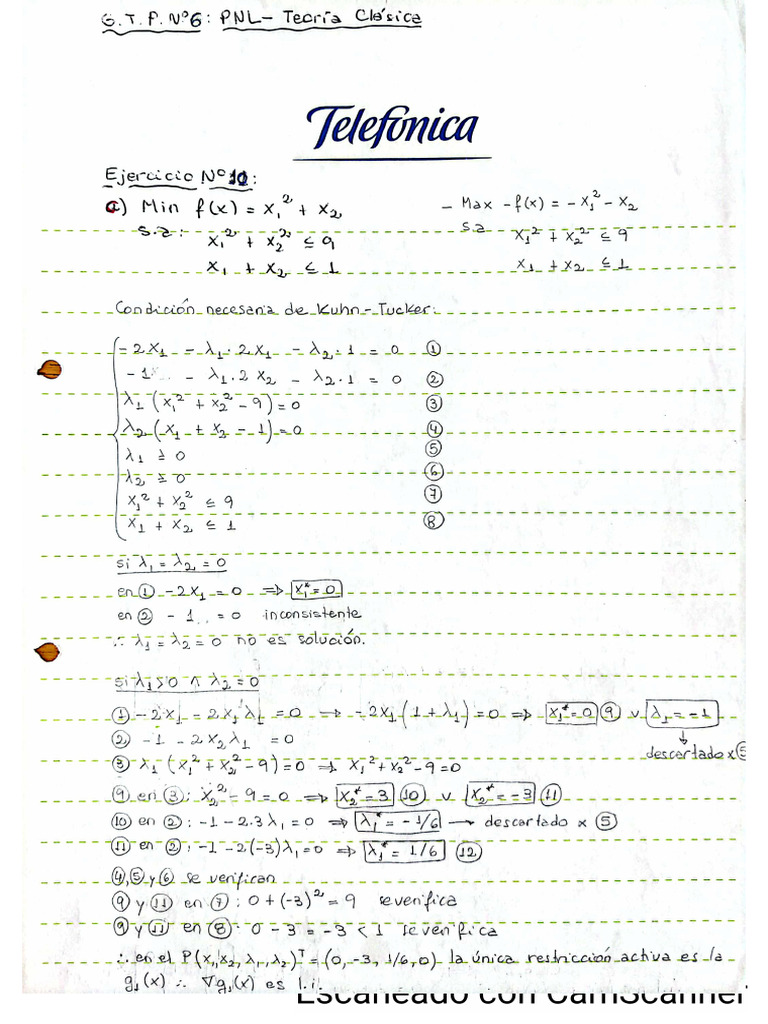 G.T.P. Nº6: PNL - Teoría Clásica
Telefónica
Ejercicio Nº 10:
a) Min f(x) = x₁² + x₂
s.a: x₁² + x₂² ≤ 9
x₁ + x₂ ≤ 1
- Max -f(x) = -x₁² - x₂
s.a x₁² + x₂² ≤ 9
x₁ + x₂ ≤ 1
Condición necesaria de Kuhn-Tucker:
-2x₁ - λ₁·2x₁ - λ₂·1 = 0 ①
-1 - λ₁·2x₂ - λ₂·1 = 0 ②
λ₁(x₁² + x₂² - 9) = 0 ③
λ₂(x₁ + x₂ - 1) = 0 ④
λ₁ ≥ 0 ⑤
λ₂ ≥ 0 ⑥
x₁² + x₂² ≤ 9 ⑦
x₁ + x₂ ≤ 1 ⑧
si λ₁ = λ₂ = 0
en ① -2x₁ = 0 ⇒ x₁* = 0
en ② -1 = 0 inconsistente
∴ λ₁ = λ₂ = 0 no es solución.
si λ₁ > 0 ∧ λ₂ = 0
① -2x₁ - 2x₁λ₁ = 0 → -2x₁(1 + λ₁) = 0 ⇒ x₁* = 0 ⑨ ∨ λ₁ = -1
↓
descartado x ⑤
② -1 - 2x₂λ₁ = 0
③ λ₁(x₁² + x₂² - 9) = 0 → x₁² + x₂² - 9 = 0
⑨ en ③: x₂² - 9 = 0 ⇒ x₂* = 3 ⑩ ∨ x₂* = -3 ⑪
⑩ en ②: -1 - 2·3λ₁ = 0 ⇒ λ₁* = -1/6 → descartado x ⑤
⑪ en ②: -1 - 2(-3)λ₁ = 0 ⇒ λ₁* = 1/6 ⑫
④, ⑤ y ⑥ se verifican
⑨ y ⑪ en ⑦: 0 + (-3)² = 9 se verifica
⑨ y ⑪ en ⑧: 0 - 3 = -3 < 1 se verifica
∴ en el P(x₁, x₂, λ₁, λ₂)ᵀ = (0, -3, 1/6, 0) la única restricción activa es la
g₁(x) ∴ ∇g₁(x) es l.i.
Escaneado con CamScanner